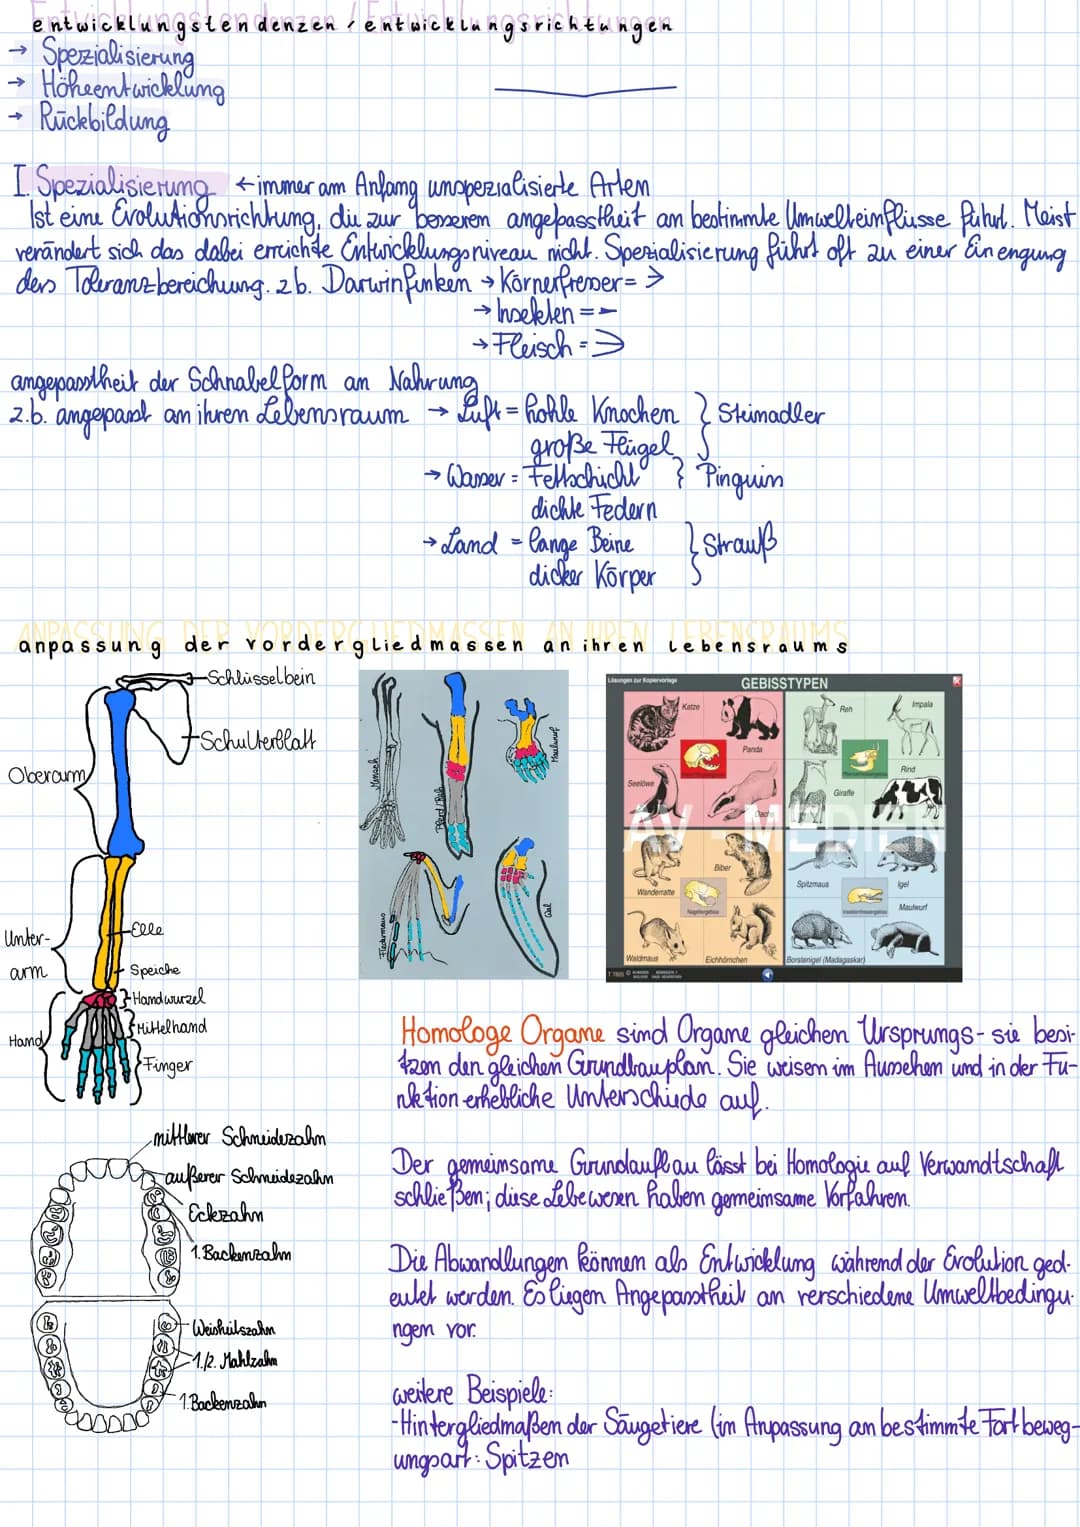 entwicklungstendenzen / entwicklungsrichtungen
→ Spezialisierung
→ Höheentwicklung
→ Rückbildung
I. Spezialisierung ← immer am Anfang unspezialisierte Arten
Ist eine Evolutionsrichtung, die zur besseren angepasstheit an bestimmte Umwelteinflüsse führt. Meist
verändert sich das dabei erreichte Entwicklungsniveau nicht. Spezialisierung führt oft zu einer Einengung
des Toleranzbereichung. z.b. Darwinfinken → Körnerfresser =
→ Insekten =
→ Fleisch =
angepasstheit der Schnabelform an Nahrung
z.b. angepasst an ihren Lebensraum → Luft = hohle Knochen } Steinadler
große Flügel
→ Wasser = Fettschicht } Pinguin
dichte Federn
→ Land = lange Beine } Strauß
dicker Körper
anpassung der vordergliedmassen an ihren Lebensraums
Schlüsselbein
Schulterblatt
Oberarm
Unter-
arm
Elle
Speiche
Handwurzel
Mittelhand
Hand
Finger
Mensch
Pferd/Reh
Maulwurf
Fledermaus
Wal
Lösungen zur Kopiervorlage
GEBISSTYPEN
Katze
Panda
Seelöwe
Dachs
Reh
Impala
Giraffe
Rind
AV - MEDIEN
Wanderratte
Biber
Nagetiergebiss
Waldmaus
Eichhörnchen
Spitzmaus
Igel
Insektenfressergebiss
Maulwurf
Borstenigel (Madagaskar)
Homologe Organe sind Organe gleichen Ursprungs - sie besi-
tzen den gleichen Grundbauplan. Sie weisen im Aussehen und in der Fu-
nktion erhebliche Unterschiede auf.
Der gemeinsame Grundaufbau lässt bei Homologie auf Verwandtschaft
schließen; diese Lebewesen haben gemeinsame Vorfahren.
Die Abwandlungen können als Entwicklung während der Evolution ged-
eutet werden. Es liegen Angepasstheit an verschiedene Umweltbedingu-
ngen vor.
weitere Beispiele:
- Hintergliedmaßen der Säugetiere (im Anpassung an bestimmte Fortbeweg-
ungsart: Spitzen
mittlerer Schneidezahn
äußerer Schneidezahn
Eckzahn
1. Backenzahn
Weisheitszahn
1./2. Mahlzahn
1. Backenzahn